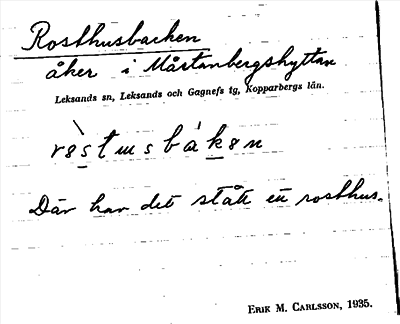 Rosthusbacken
åker i Mårtanbergshyttan
Leksands sn, Leksands och Gagnefs tg, Kopparbergs län.
Där har det stått ett rosthus.
ERIK M. CARLSSON, 1935.